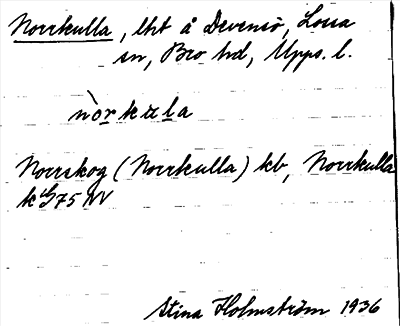 Norrkulla, lht å Devensö, Lossa
sn, Bro hd, Upps. l.
nòrkula
Norrskog (Norrkulla) kb, Norrkulla
k 75 NV
Stina Holmström 1936